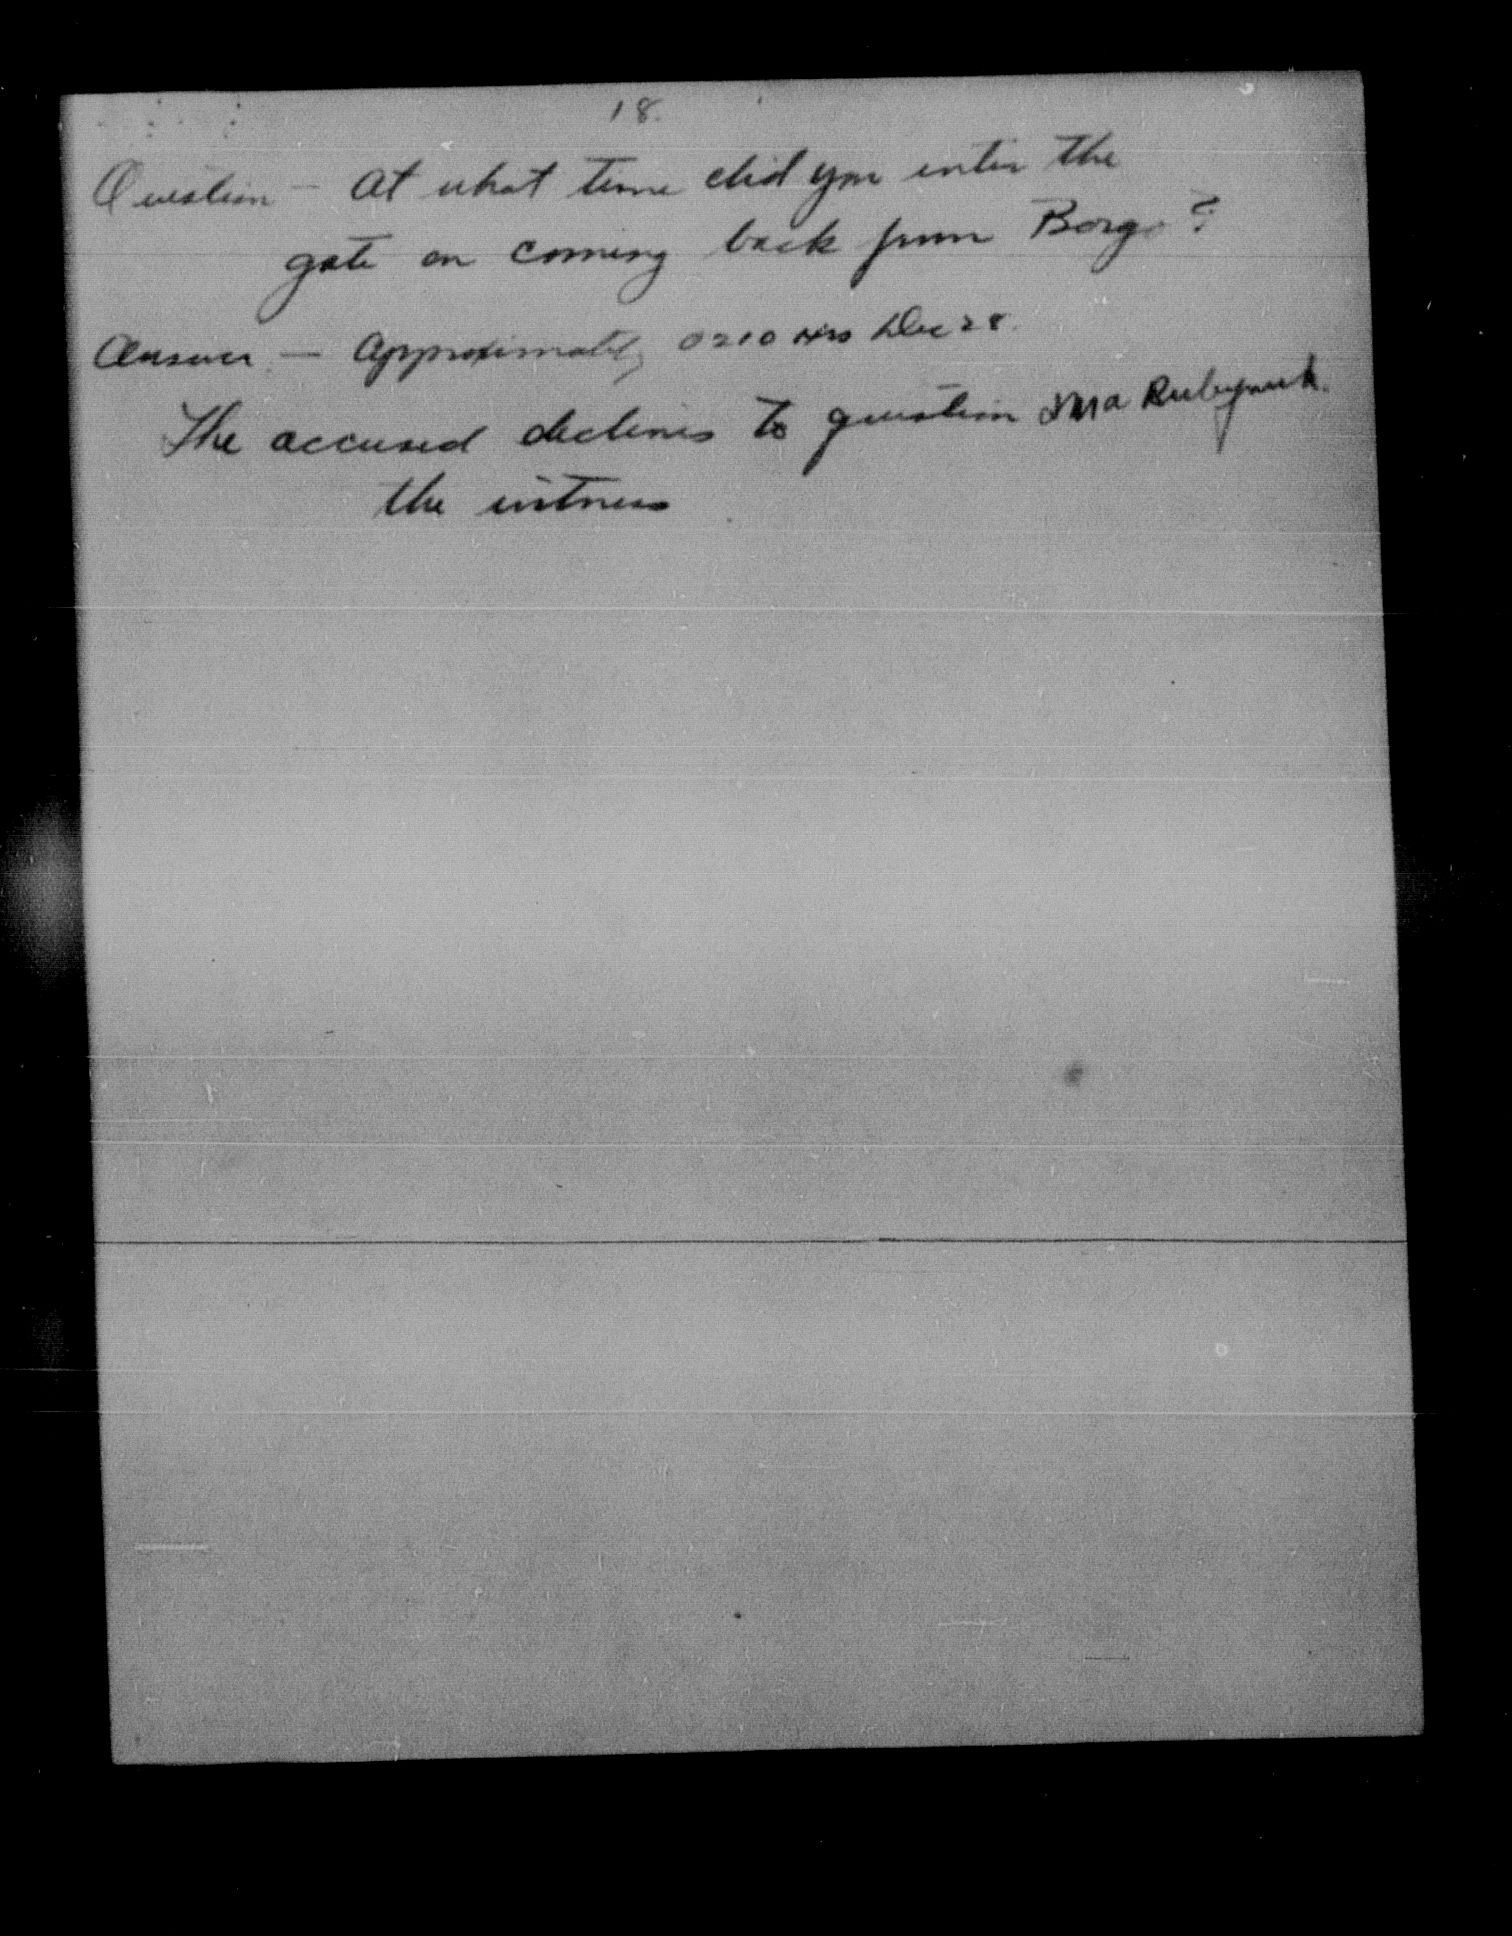 18.
Question - At what time did you enter the
gate on coming back from Borgo?
Answer. - Approximately 0210 Hrs Dec 28.
The accused declines to question
the witness